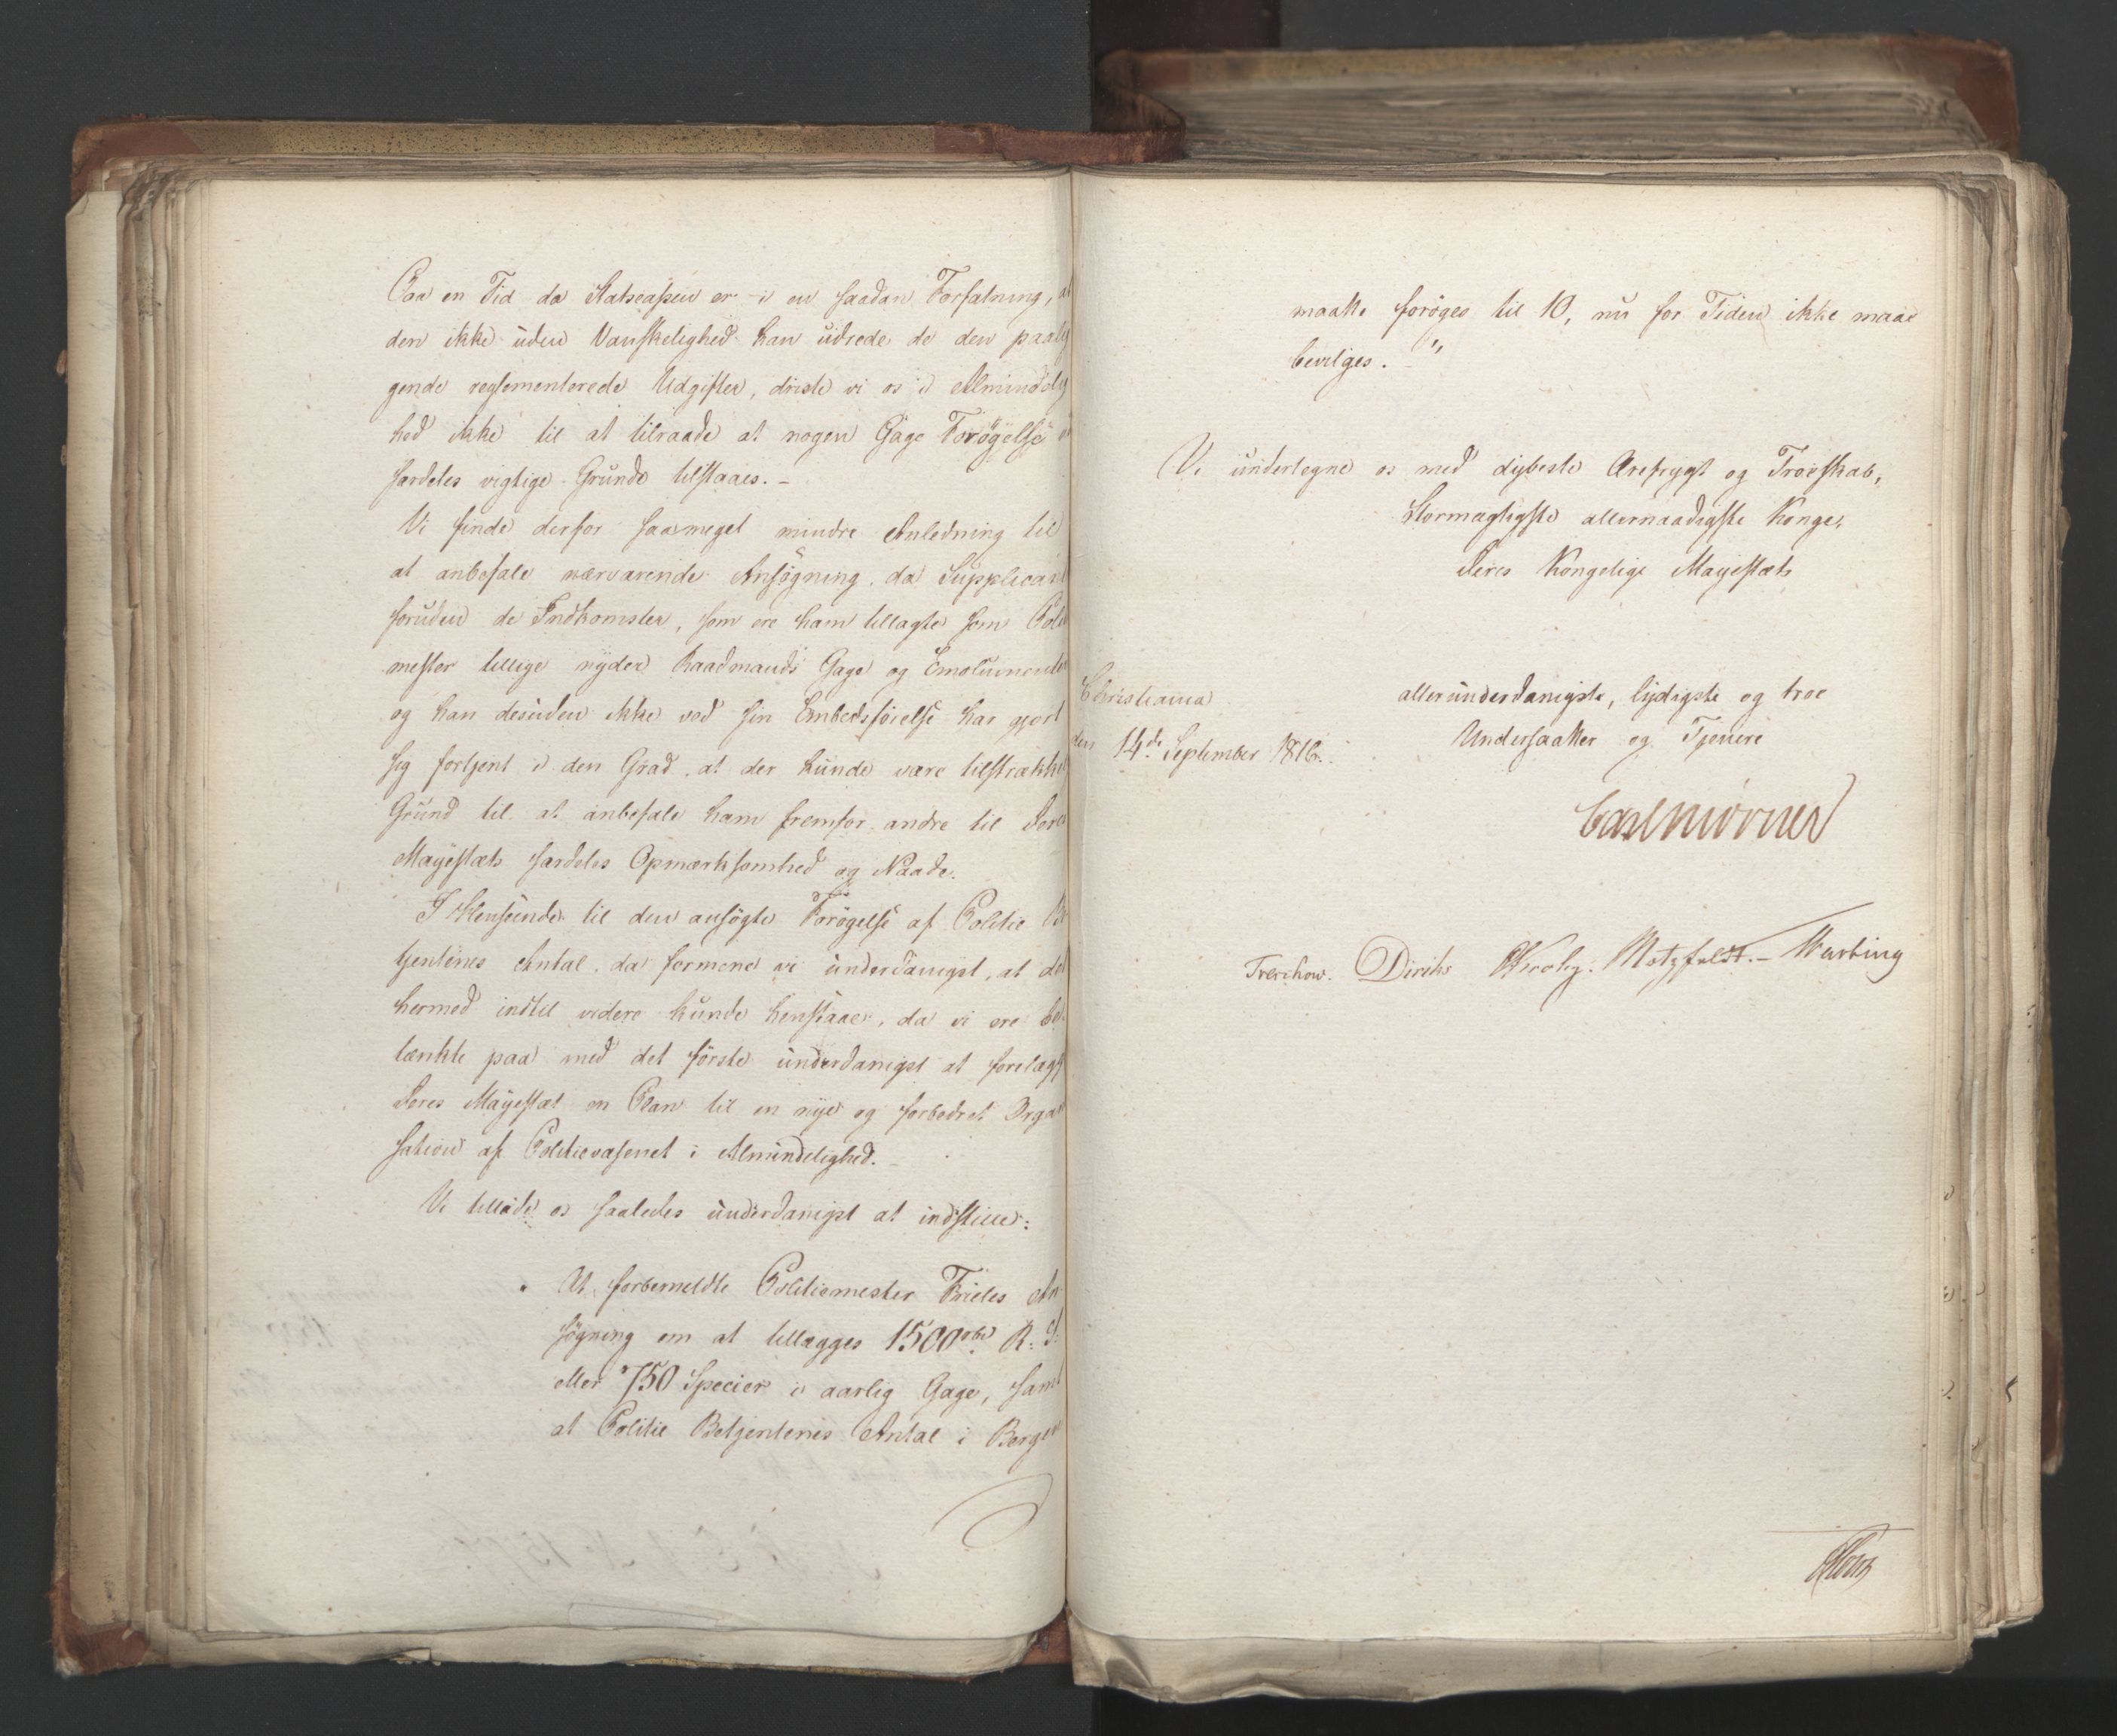 Paa en Tid da Statscassen er i en saadan Forfatning, at
den ikke uden Vanskelighed kan udrede de den paalig
gende reglementerede Udgifter, driste vi os i Almindelig
hed ikke til at tilraade at nogen Gage Forøgelse
særdeles vigtige Grunde tilstaaes. –
Vi finde derfor saameget mindre Anledning til
at anbefale nærværende Ansøgning, da Supplicant
foruden de Indkomster, som ere ham tillagte som Poli
mester tillige nyder Raadmands Gage og Emolumenter
og han desuden ikke ved sin Embedsførelse har gjort
sig fortjent i den Grad, at der kunde være tilstrækkel
Grund til at anbefale ham fremfor andre til Deres
Majestæts særdeles Opmærksomhed og Naade.
I Henseende til den ansøgte Forøgelse af Politie Be
tjentenes Antal, da formene vi underdanigst, at det
hermed indtil videre kunde henstaae, da vi ere be-
tænkte paa med det første underdanigst at forelægge
Deres Majestæt en Plan til en nye og forbedret Organi
sation af Politievæsenet i Almindelighed. –
Vi tillade os saaledes underdanigst at indstille:
" At forbemeldte Politiemester Frieles An
søgning om at tillægges 1500 rbd R: S.
eller 750 Specier i aarlig Gage, samt
at Politie Betjentenes Antal i Bergen
maatte forøges til 10, nu for Tiden ikke maae
bevilges. "
Vi undertegne os med dybeste Ærefrygt og Troeskab,
Stormægtigste allernaadigste Konge,
Deres Kongelige Majestæts
Christiania
den 14de September 1816.
allerunderdanigste, lydigste og troe
Undersaatter og Tjenere
Carl Mörner
Treschow. Diriks Krohg. Motzfeldt. –